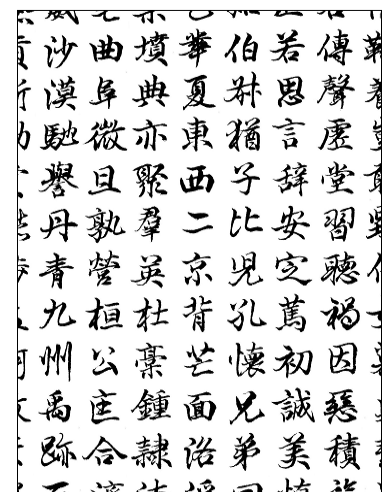 傳聲虛堂習聽禍因惡積
若思言辞安定篤初誠美
伯叔猶子比兒孔懷兄弟
華夏東西二京背芒面洛
墳典亦聚羣英杜稾鍾隸
曲阜微旦孰營桓公匡合
沙漠馳譽丹青九州禹跡